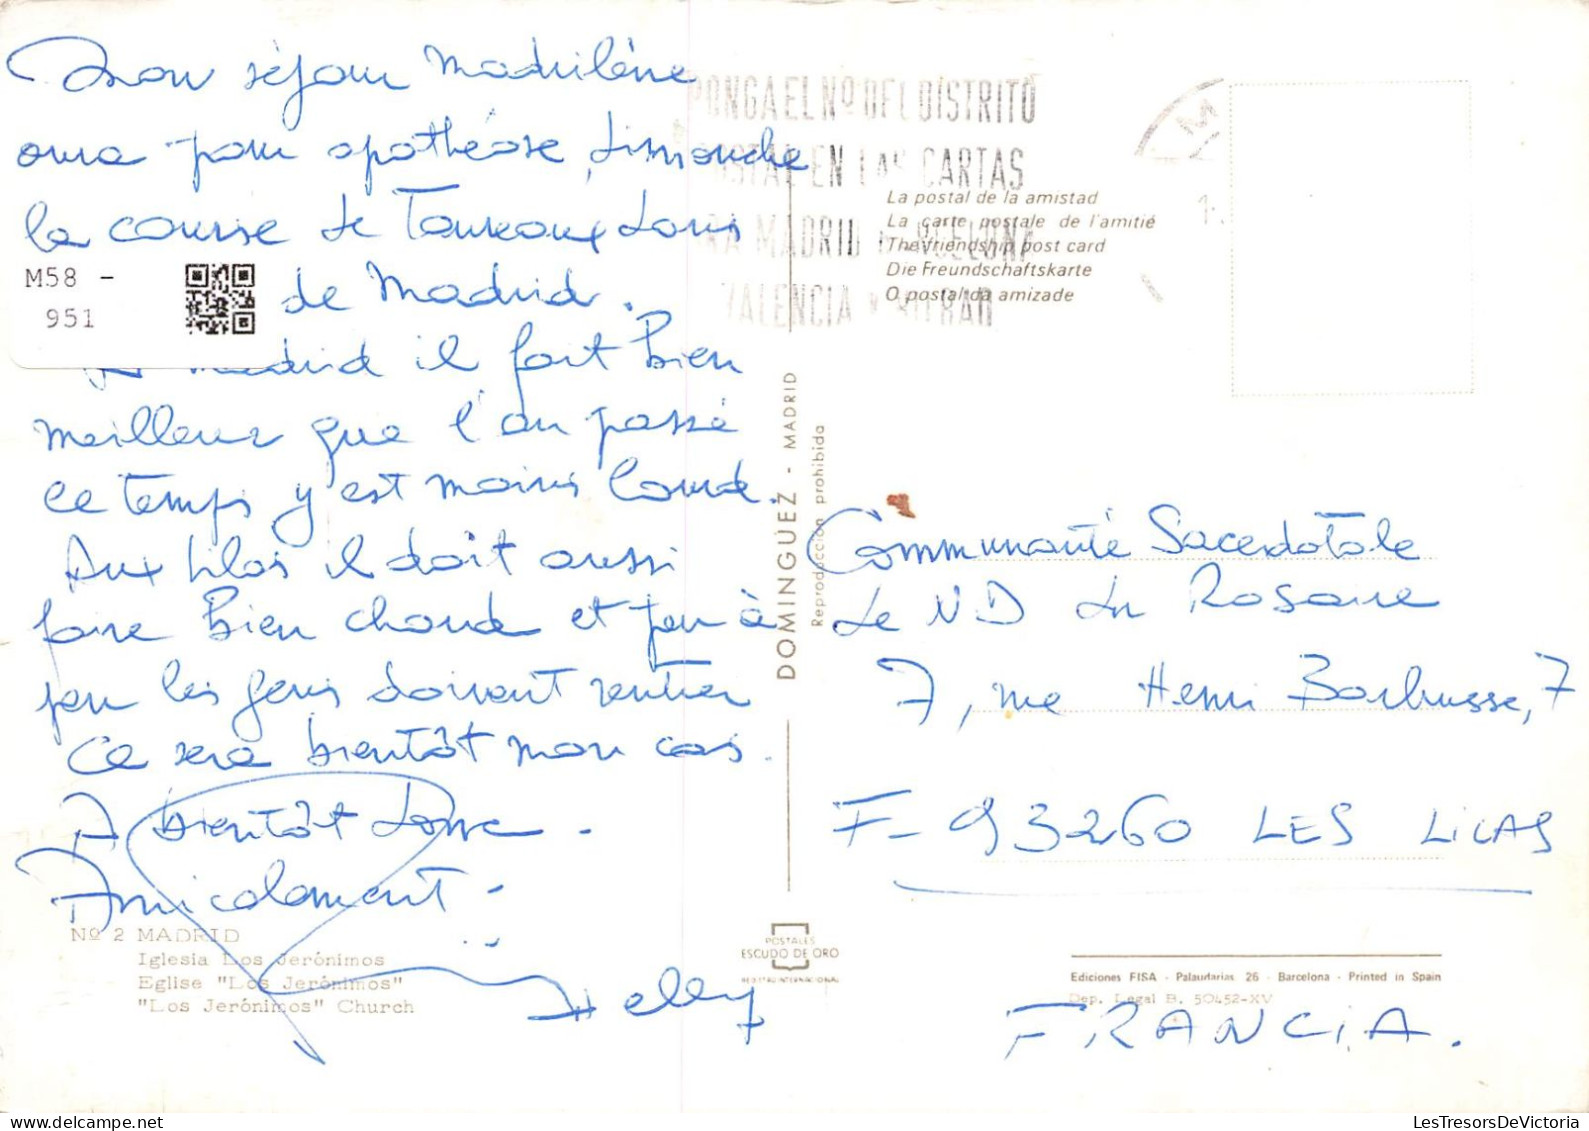 Mon séjour Madrilène
aura pour apothéose, dimanche
la course de Taureaux dans
de Madrid.
A Madrid il fait bien
meilleur que l'an passé
le temps y est moins lourd.
Aux Lilas il doit aussi
faire bien chaud et peu à
peu les gens doivent rentrer
Ce sera bientôt mon cas.
A bientôt donc.
Amicalement -
M58 -
951
Nº 2 MADRID
Iglesia Los Jerónimos
Eglise "Los Jerónimos"
"Los Jerónimos" Church
PONGA EL Nº DEL DISTRITO
POSTAL EN LAS CARTAS
PARA MADRID BARCELONA
VALENCIA Y BILBAO
La postal de la amistad
La carte postale de l'amitié
The friendship post card
Die Freundschaftskarte
O postal da amizade
DOMINGUEZ - MADRID
Reproducción prohibida
POSTALES
ESCUDO DE ORO
REGISTRO INTERNACIONAL
Communauté Sacerdotale
de N D du Rosaire
7, rue Henri Barbusse, 7
F- 93260 LES LILAS
Ediciones FISA - Palaudarias 26 - Barcelona - Printed in Spain
Dep. Legal B. 50452-XV
FRANCIA.
LesTresorsDeVictoria.com